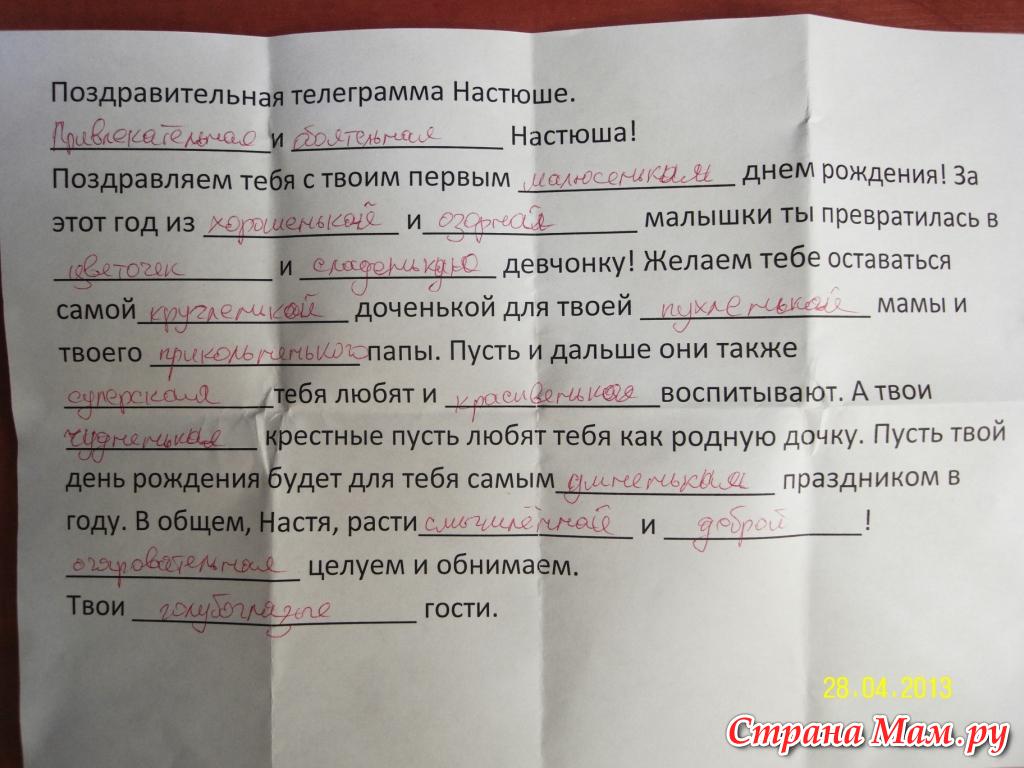 Поздравительная телеграмма Настюше.
Привлекательная и боятельная Настюша!
Поздравляем тебя с твоим первым малюсеньким днем рождения! За
этот год из хорошенькой и озорная малышки ты превратилась в
цветочек и сладенькую девчонку! Желаем тебе оставаться
самой кругленькой доченькой для твоей пухленькой мамы и
твоего прикольненького папы. Пусть и дальше они также
суперская тебя любят и красивенькая воспитывают. А твои
чудненькая крестные пусть любят тебя как родную дочку. Пусть твой
день рождения будет для тебя самым длиненьким праздником в
году. В общем, Настя, расти смышлённой и доброй!
очаровательная целуем и обнимаем.
Твои голубоглазые гости.
28.04.2013
Страна Мам.ру